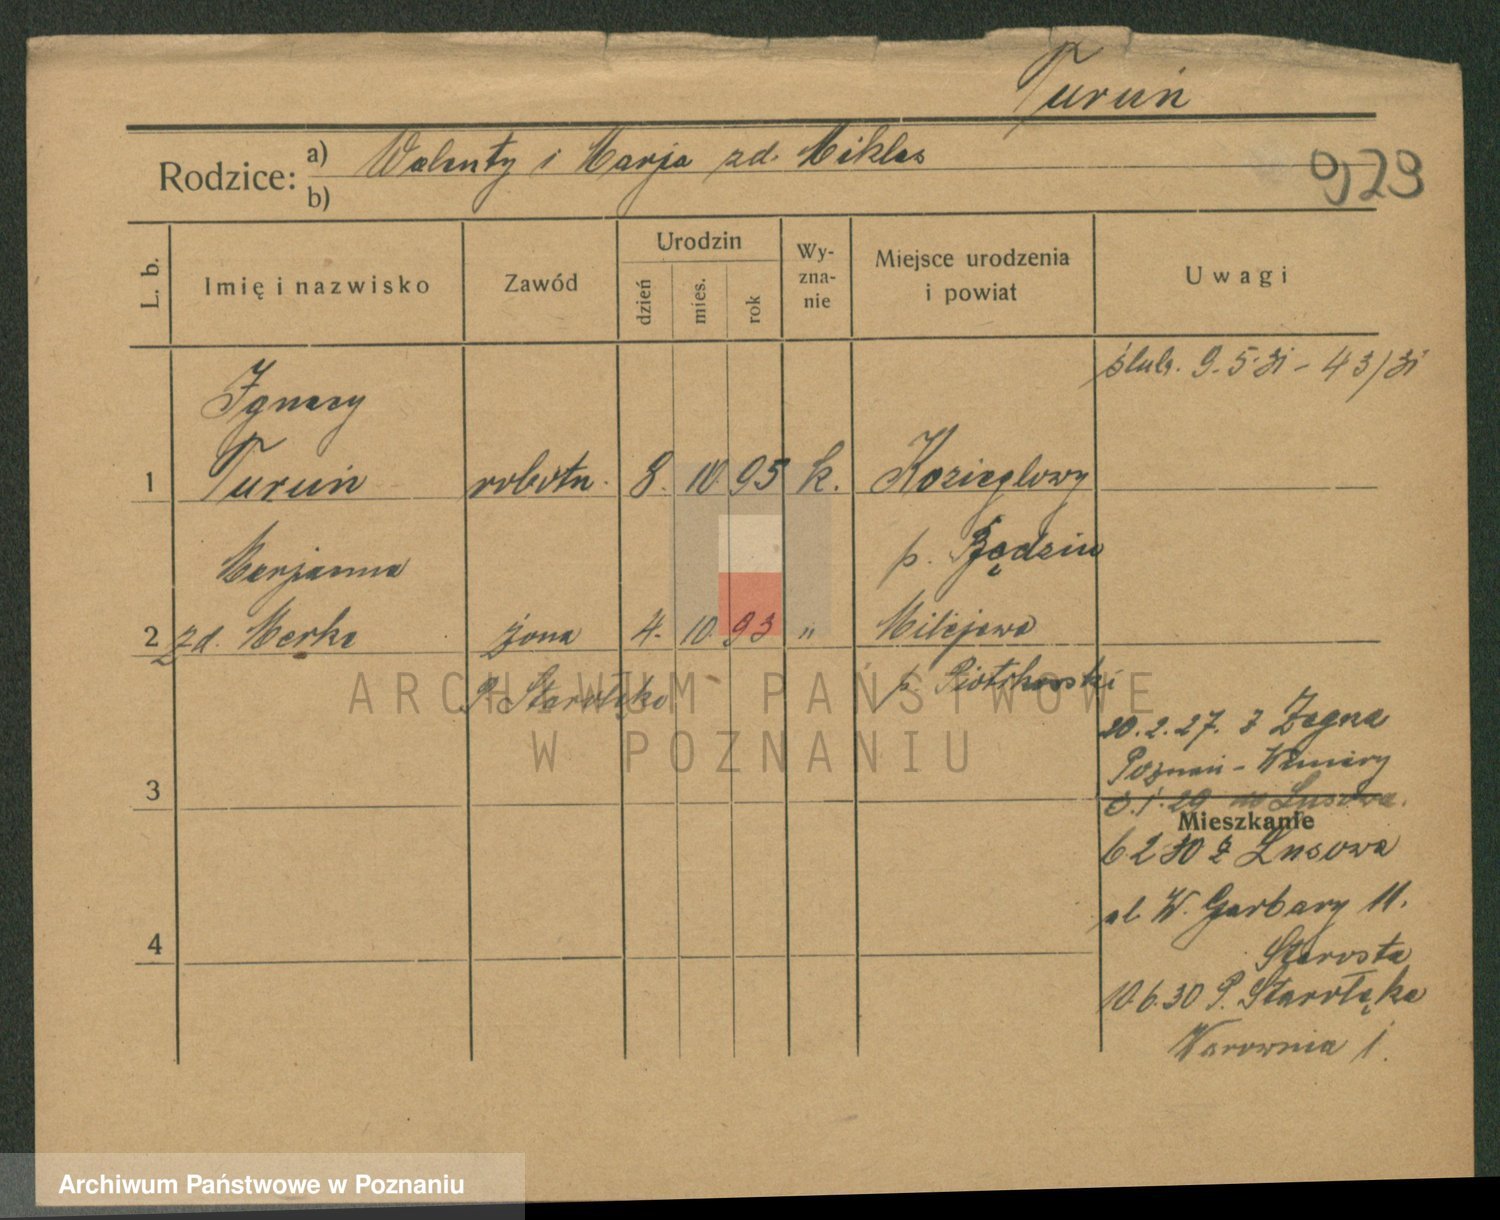 Turuń
Rodzice: a) Walenty i Marja zd. Miklas
b)
9723
L. b.
Imię i nazwisko
Zawód
Urodzin
dzień
mies.
rok
Wy-
zna-
nie
Miejsce urodzenia
i powiat
Uwagi
ślub. 9.5.31 - 43/31
Ignacy
1 Turuń robotn. 8. 10 95 k. Kozieglowy
Marjanna p. Będzin
2 zd. Merka żona 4. 10. 93 " Milejowa
P. Starołęka p. Piotrkowski
ARCHIWUM PAŃSTWOWE
W POZNANIU
20.2.27. z Żegna
Poznań - Winiary
3
3.1.29 Lusowa.
Mieszkanie
6 2 30 z Lusowa
ul. W. Garbary 11.
4
Starosta
10.6.30 P. Starołęka
Warownia 1.
Archiwum Państwowe w Poznaniu